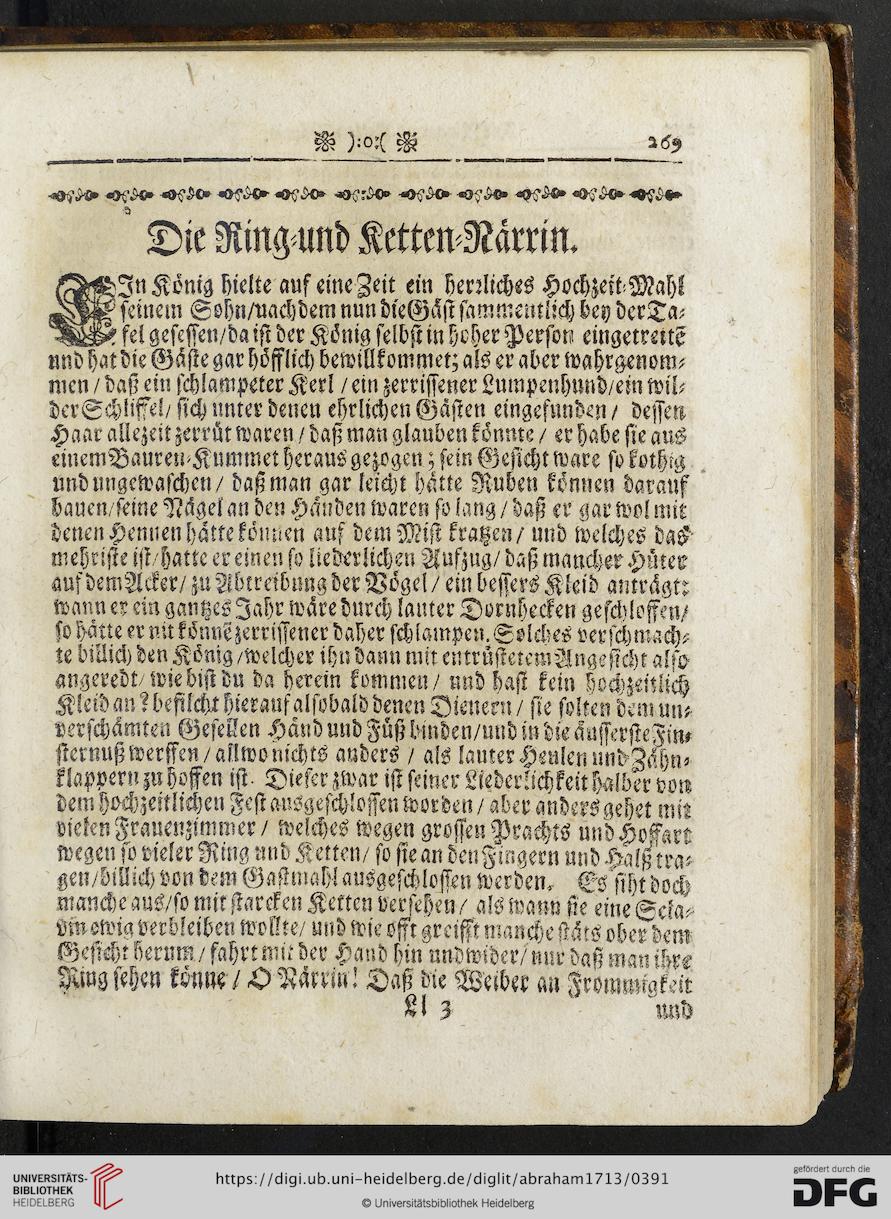 ):o:( 269
Die Ring-und Ketten-Närrin.
EIn König hielte auf eine Zeit ein herrliches Hochzeit-Mahl
seinem Sohn/nachdem nun die Gäst sammentlich bey der Ta-
fel gesessen/da ist der König selbst in hoher Person eingetrettē
und hat die Gäste gar höfflich bewillkommet; als er aber wahrgenom-
men / daß ein schlampeter Kerl / ein zerrissener Lumpenhund/ein wil-
der Schliffel/ sich unter denen ehrlichen Gästen eingefunden / dessen
Haar allezeit zerrüt waren / daß man glauben könnte / er habe sie aus
einem Bauren-Kummet heraus gezogen ; sein Gesicht ware so kothig
und ungewaschen / daß man gar leicht hätte Ruben können darauf
bauen/seine Nägel an den Händen waren so lang / daß er gar wol mit
denen Hennen hätte können auf dem Mist kratzen / und welches das
mehriste ist/hatte er einen so liederlichen Aufzug/ daß mancher Hüter
auf dem Acker/ zu Abtreibung der Vögel / ein bessers Kleid anträgt:
wann er ein gantzes Jahr wäre durch lauter Dornhecken geschloffen/
so hätte er nit könnē zerrissener daher schlampen. Solches verschmach-
te billich den König /welcher ihn dann mit entrüstetem Angesicht also
angeredt/ wie bist du da herein kommen / und hast kein hochzeitlich
Kleid an ? befilcht hierauf alsobald denen Dienern / sie solten dem un-
verschämten Gesellen Händ und Füß binden/und in die äusserste Fin-
sternuß werffen / allwo nichts anders / als lauter Heulen und Zähn-
klappern zu hoffen ist. Dieser zwar ist seiner Liederlichkeit halber von
dem hochzeitlichen Fest ausgeschlossen worden / aber anders gehet mit
vielen Frauenzimmer / welches wegen grossen Prachts und Hoffart
wegen so vieler Ring und Ketten/ so sie an den Fingern und Halß tra-
gen/billich von dem Gastmahl ausgeschlossen werden. Es siht doch
manche aus/so mit starcken Ketten versehen / als wann sie eine Scla-
vin ewig verbleiben wollte/ und wie offt greifft manche stäts ober dem
Gesicht herum / fahrt mit der Hand hin und wider/ nur daß man ihre
Ring sehen könne / O Närrin! Daß die Weiber an Frommigkeit
Ll 3 und
UNIVERSITÄTS-
BIBLIOTHEK
HEIDELBERG
https://digi.ub.uni-heidelberg.de/diglit/abraham1713/0391
© Universitätsbibliothek Heidelberg
gefördert durch die
DFG